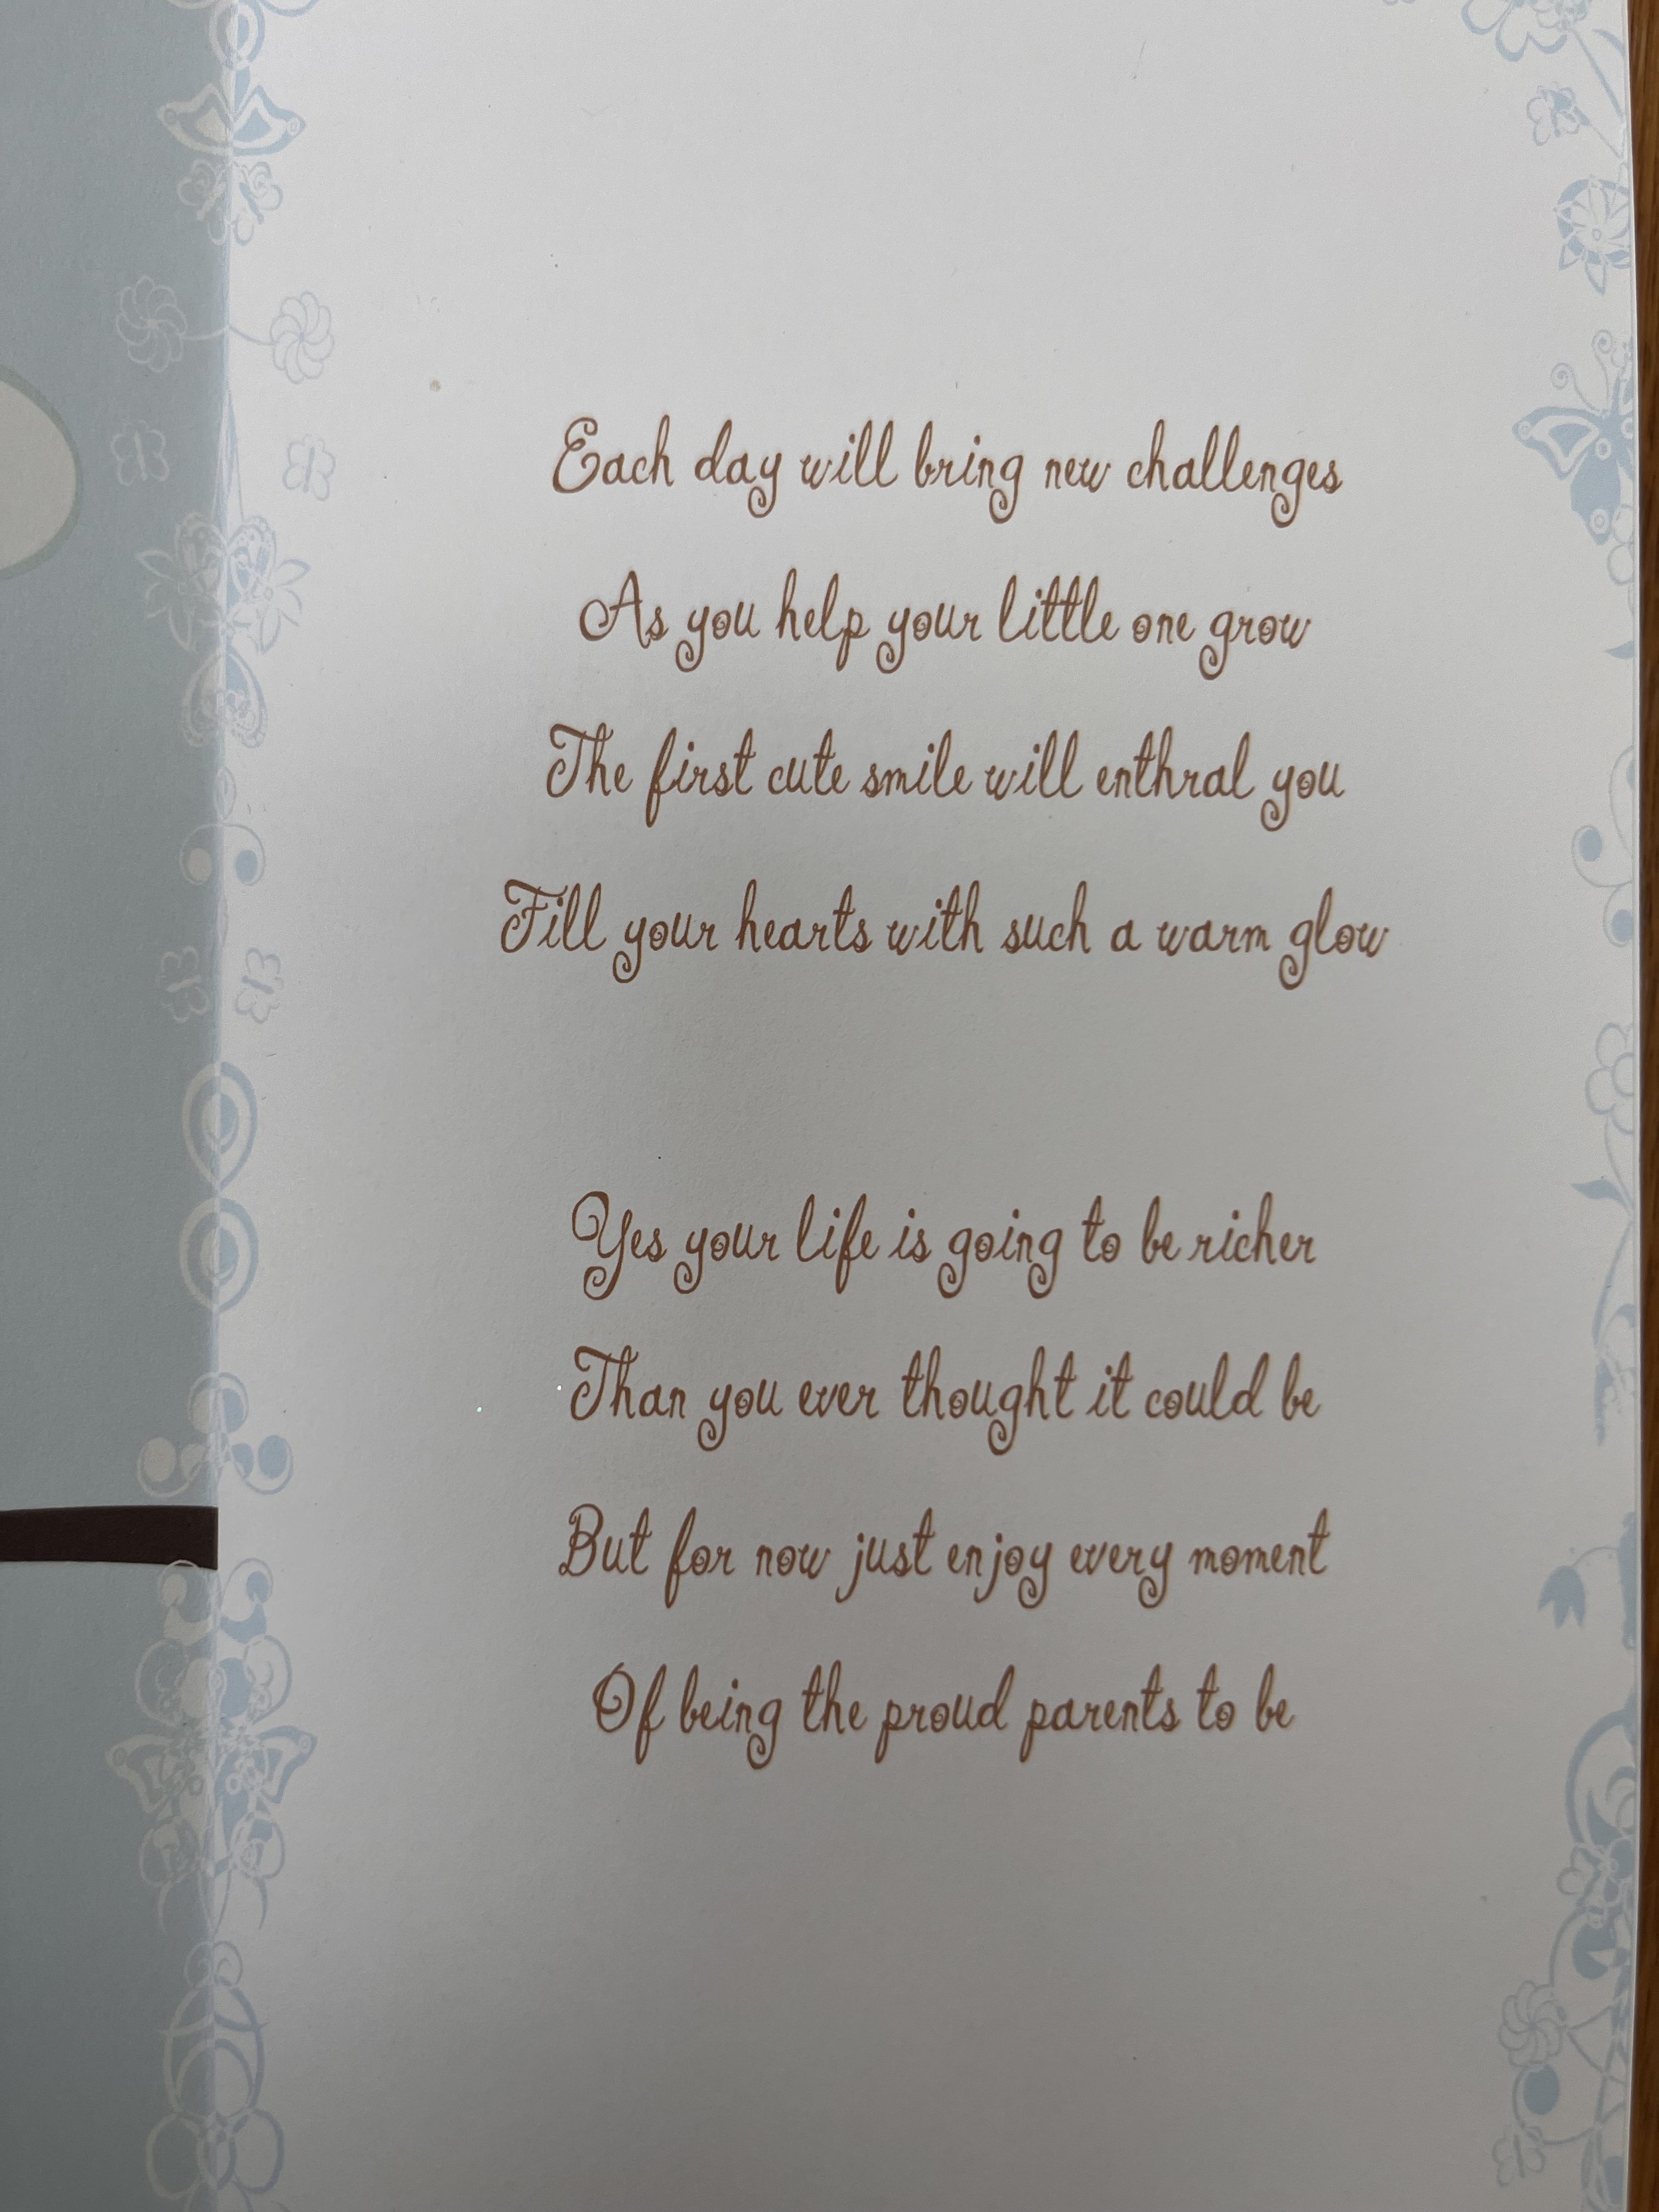 Each day will bring new challenges
As you help your little one grow
The first cute smile will enthral you
Fill your hearts with such a warm glow
Yes your life is going to be richer
Than you ever thought it could be
But for now just enjoy every moment
Of being the proud parents to be